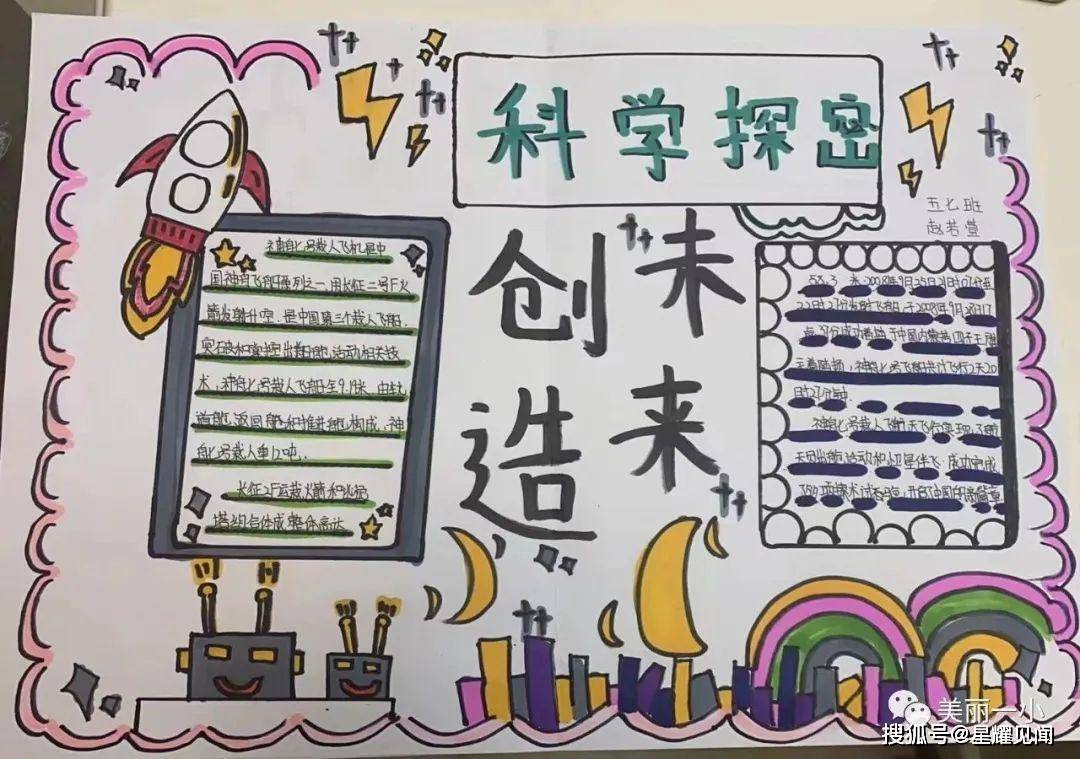 科学探密
五七班
赵若萱
创造
未来
神舟七号载人飞船是中
国神舟飞船系列之一,用长征二号F火
箭发射升空.是中国第三个载人飞船.
突破和掌握出舱活动相关技
术,神舟七号载人飞船全长9.19米.由轨
道舱.返回舱和推进舱构成.神
舟七号载人重12吨.
长征2F运载火箭和逃逸
塔组合体成整体高达
58.3米.2008年9月25日21时
于2008年9月28日17
分成功着陆于中国内蒙古四子王旗
主着陆场,神舟七号飞船共计飞行2天20
时27分钟.
神舟七号载人飞船
天员出舱活动和小卫星伴飞.成功完成
美丽一小
搜狐号@星耀见闻